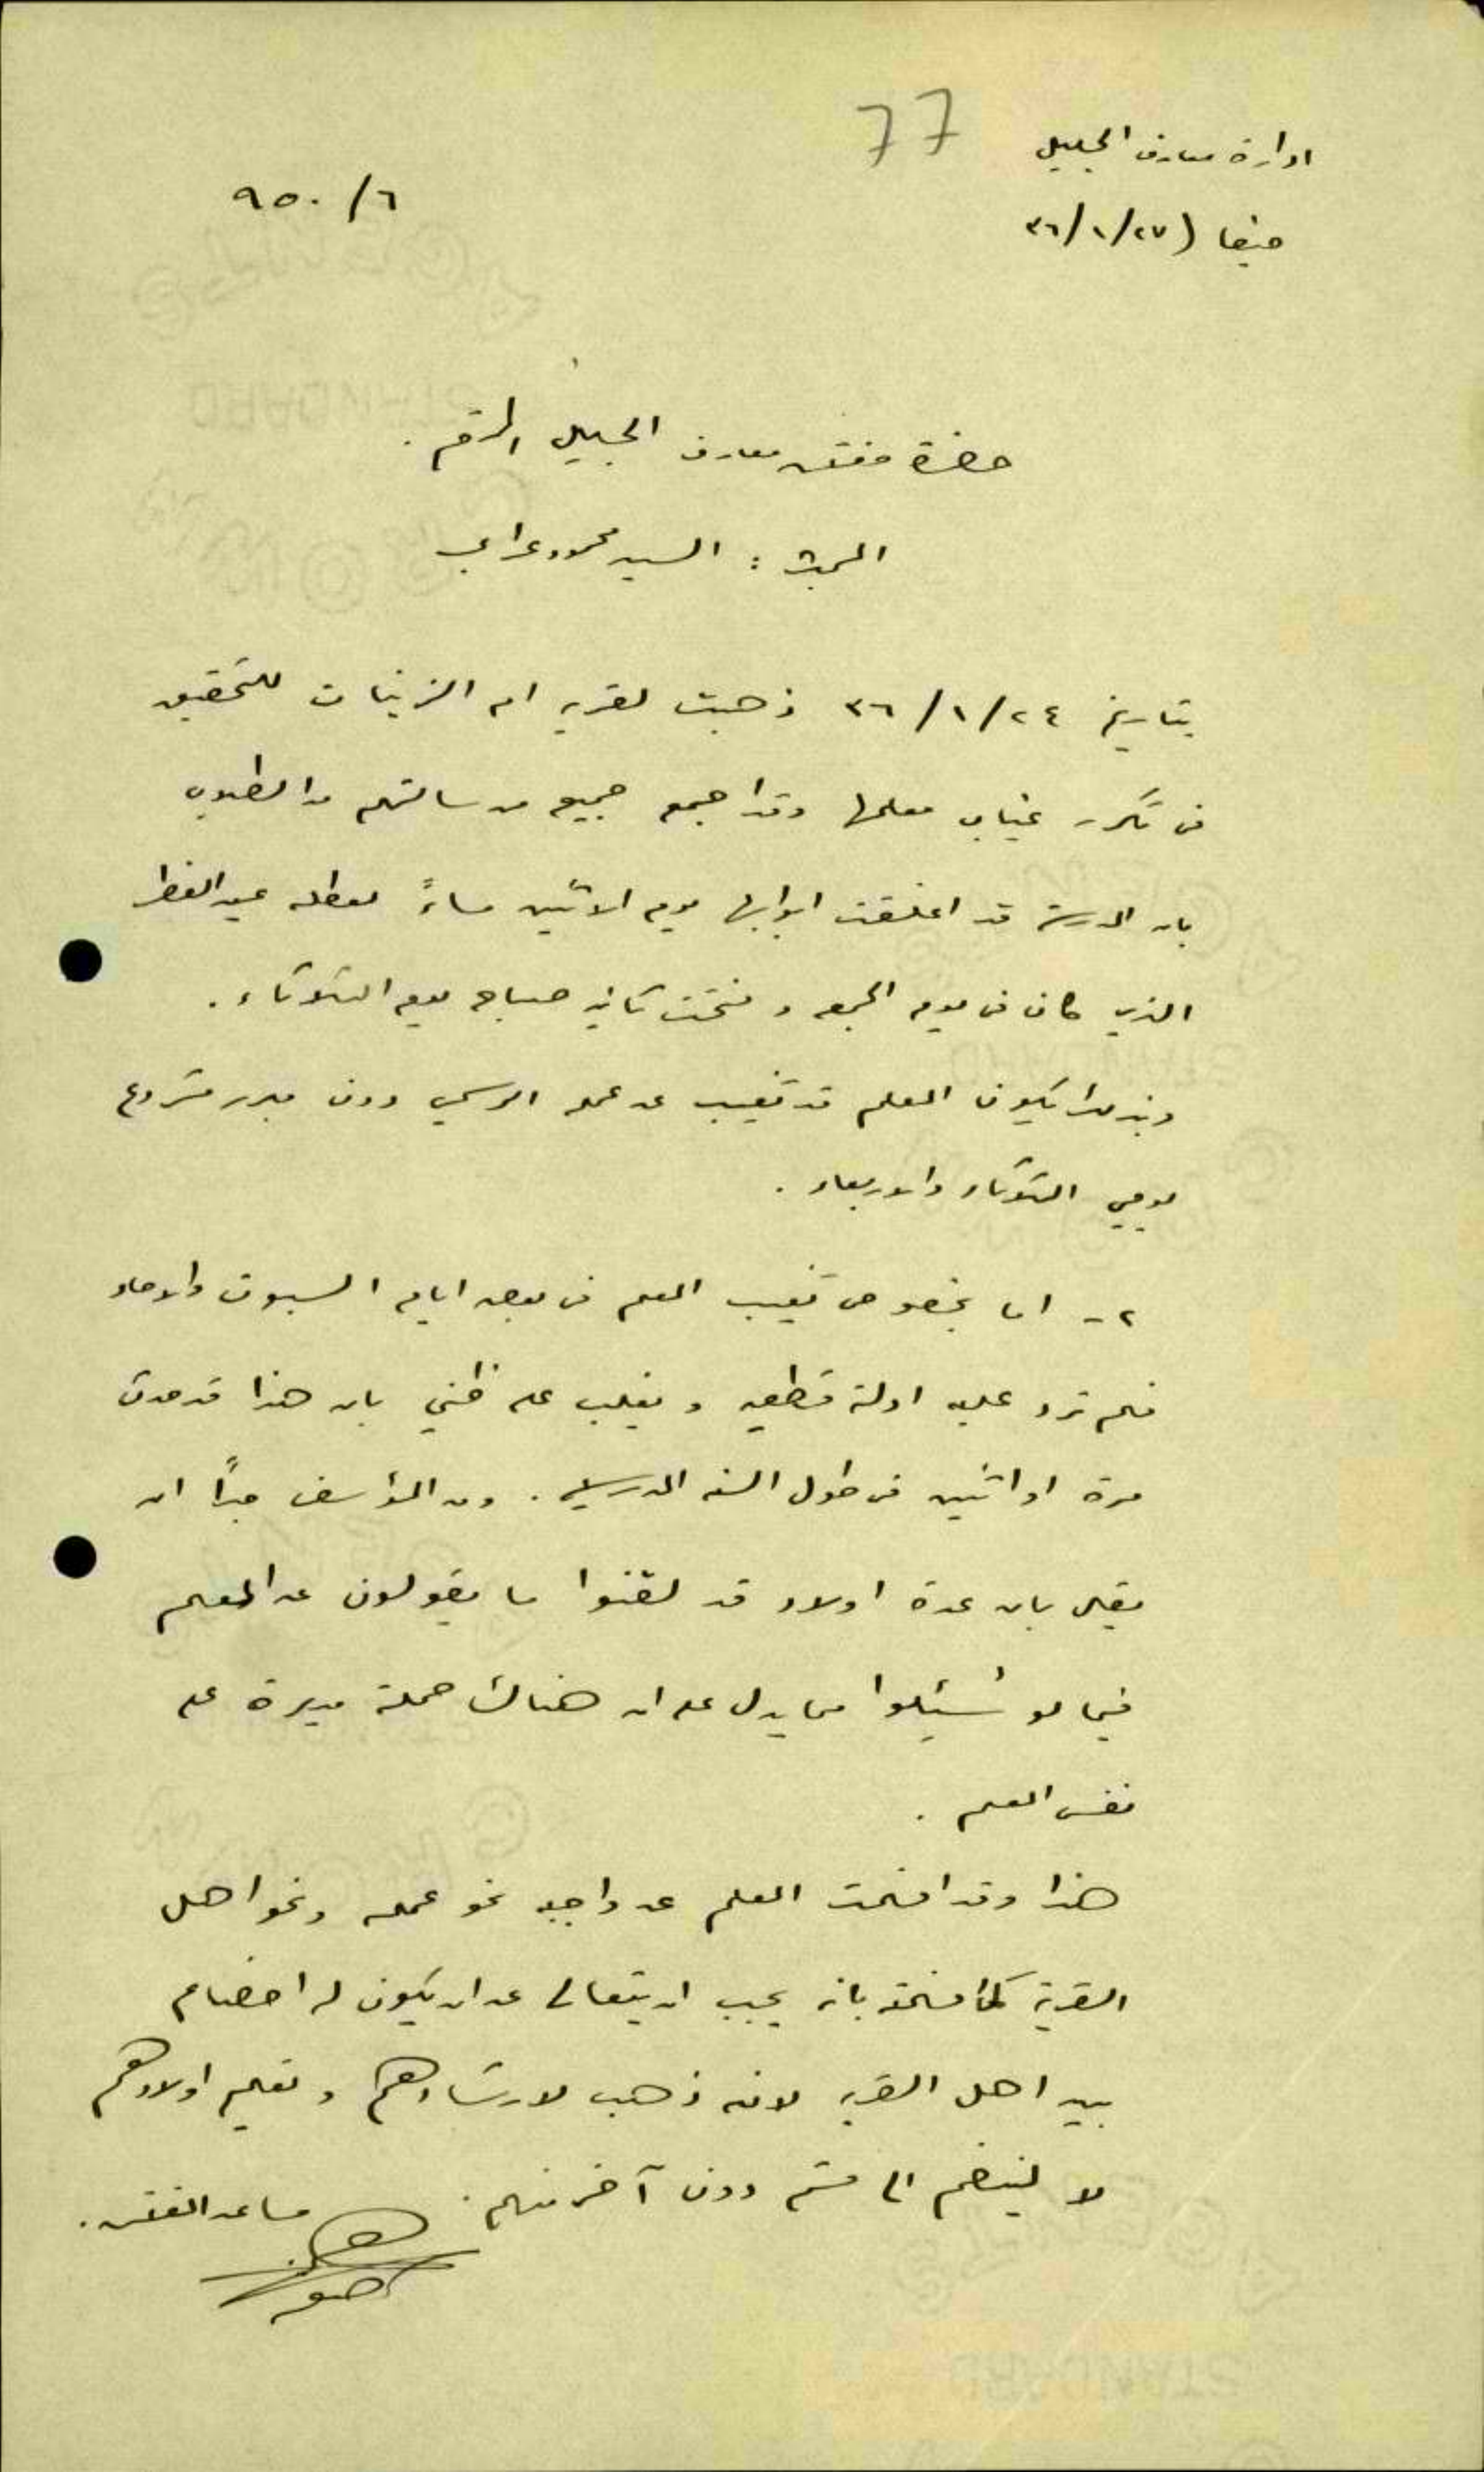 77
ادارة معارف الجليل
٦/ ٩٥٠
حيفا (٢٧/ ١/ ٣٦
حضرة مفتش معارف الجليل المحترم .
المبحث : السيد محمود عرابي
بتاريخ ٢٤/ ١/ ٣٦ ذهبت لقريه ام الزينات للتحقيق
في تكرر غياب معلمها وقد اجمع جميع من سالتهم من الطلاب
بان المدرسة قد اغلقت ابوابها يوم الاثنين مساءً لعطلة عيد الفطر
الذي كان في يوم الجمعه و فتحت ثانيه صباح يوم الثلاثاء .
وبذا يكون المعلم قد تغيب عن عمله الرسمي دون مبرر مشروع
يومي الثلاثاء والاربعاء .
٢ - اما بخصوص تغيب المعلم في بعض ايام السبوت والاحاد
فلم ترد عليه ادلة قطعيه و يغلب على ظني بان هذا قد حدث
مرة او اثنين في طول السنه المدرسيه . ومن المؤسف جداً ان
يقال بان عدة اولاد قد لقنوا ما يقولون عن المعلم
فيما لو سُئلوا مما يدل على ان هناك حملة مدبرة على
نفس المعلم .
هذا وقد افهمت المعلم عن واجبه نحو عمله ونحو اهل
القرية كما افهمته بانه يجب ان يتعالى عن ان يكون له اخصام
بين اهل القريه لانه ذهب لارشادهم و تعليم اولادهم
لا لينضم الى قسم دون آخر منهم .
مساعد المفتش .